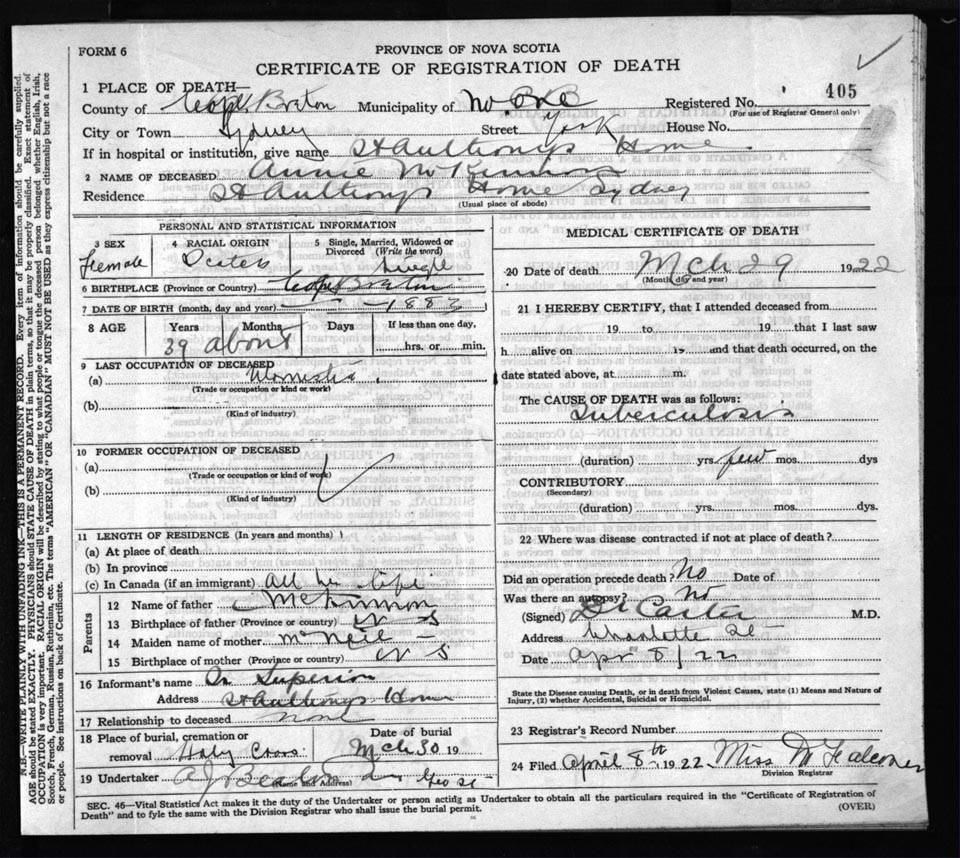 FORM 6
PROVINCE OF NOVA SCOTIA
CERTIFICATE OF REGISTRATION OF DEATH
1 PLACE OF DEATH—
405
County of Cape Breton Municipality of No One Registered No.
(For use of Registrar General only)
City or Town Sydney Street York House No.
If in hospital or institution, give name St Anthonys Home
2 NAME OF DECEASED Annie McKinnon
Residence St Anthonys Home Sydney
(Usual place of abode)
PERSONAL AND STATISTICAL INFORMATION
3 SEX 4 RACIAL ORIGIN 5 Single, Married, Widowed or Divorced (Write the word)
Female Scotch Single
6 BIRTHPLACE (Province or Country) Cape Breton
7 DATE OF BIRTH (month, day and year) 1883
8 AGE Years Months Days If less than one day,
39 about hrs. or min.
9 LAST OCCUPATION OF DECEASED
(a) Domestic
(Trade or occupation or kind or work)
(b)
(Kind of industry)
10 FORMER OCCUPATION OF DECEASED
(a)
(Trade or occupation or kind of work)
(b)
(Kind of industry)
11 LENGTH OF RESIDENCE (In years and months)
(a) At place of death
(b) In province
(c) In Canada (if an immigrant) All her life
Parents
12 Name of father McKinnon
13 Birthplace of father (Province or country) N S
14 Maiden name of mother McNeil
15 Birthplace of mother (Province or country) N S
16 Informant's name Superior
Address St Anthonys Home
17 Relationship to deceased none
18 Place of burial, cremation or Date of burial
removal Holy Cross Mch 30 19
19 Undertaker A J Beaton Geo St
(Name and Address)
MEDICAL CERTIFICATE OF DEATH
20 Date of death Mch 29 1922
(Month, day and year)
21 I HEREBY CERTIFY, that I attended deceased from
19 to 19 that I last saw
h alive on 19 and that death occurred, on the
date stated above, at m.
The CAUSE OF DEATH was as follows:
Tuberculosis
(duration) yrs. few mos. dys
CONTRIBUTORY
(Secondary)
(duration) yrs. mos. dys.
22 Where was disease contracted if not at place of death?
Did an operation precede death? No Date of
Was there an autopsy? No
(Signed) Carter M.D.
Address Charlotte St
Date Apr 8/22
State the Disease causing Death, or in death from Violent Causes, state (1) Means and Nature of
Injury, (2) whether Accidental, Suicidal or Homicidal.
23 Registrar's Record Number
24 Filed April 8th 1922 Miss M Falconer
Division Registrar
SEC. 46—Vital Statistics Act makes it the duty of the Undertaker or person acting as Undertaker to obtain all the particulars required in the "Certificate of Registration of
Death" and to fyle the same with the Division Registrar who shall issue the burial permit.
(OVER)
N.B.—WRITE PLAINLY WITH UNFADING INK—THIS IS A PERMANENT RECORD. Every item of information should be carefully supplied.
AGE should be stated EXACTLY. PHYSICIANS should STATE CAUSE OF DEATH in plain terms, so that it may be properly classified. Exact statement of
OCCUPATION is very important. RACIAL ORIGIN will be described by stating to what people or tongue the deceased person belonged whether English, Irish,
Scotch, French, German, Russian, Ruthenian, etc. The terms "AMERICAN" OR "CANADIAN" MUST NOT BE USED as they express citizenship but not a race
or people. See instructions on back of Certificate.